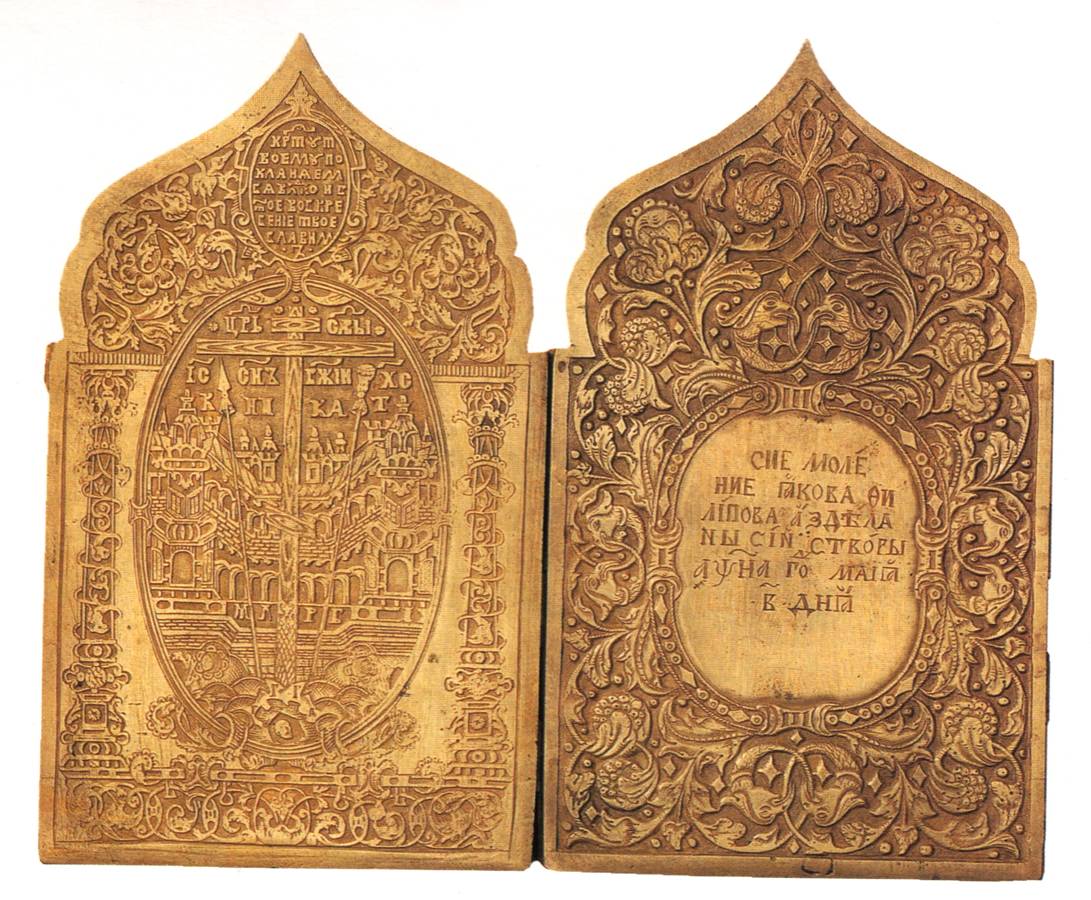 КРТУТ
ВОЕМУ ПО
КЛАНѦЕМ
СѦ ВЛКО И С
ТОЕ ВОСКРЕ
СЕНІЕ ТВОЕ
СЛАВИМ
ЦРЬ СЛВЫ
ІС СНЪ БЖІИ ХС
К Т
М Л Р Б
Г А
СИЕ МОЛЕ́
НИЕ ІѦКОВА ѲИ
ЛИПОВА А ЗДѢЛА
НЫ СІИ СТВО́РЫ
АѰ҃НА ГО МАІѦ
В҃ ДН҃Ѧ